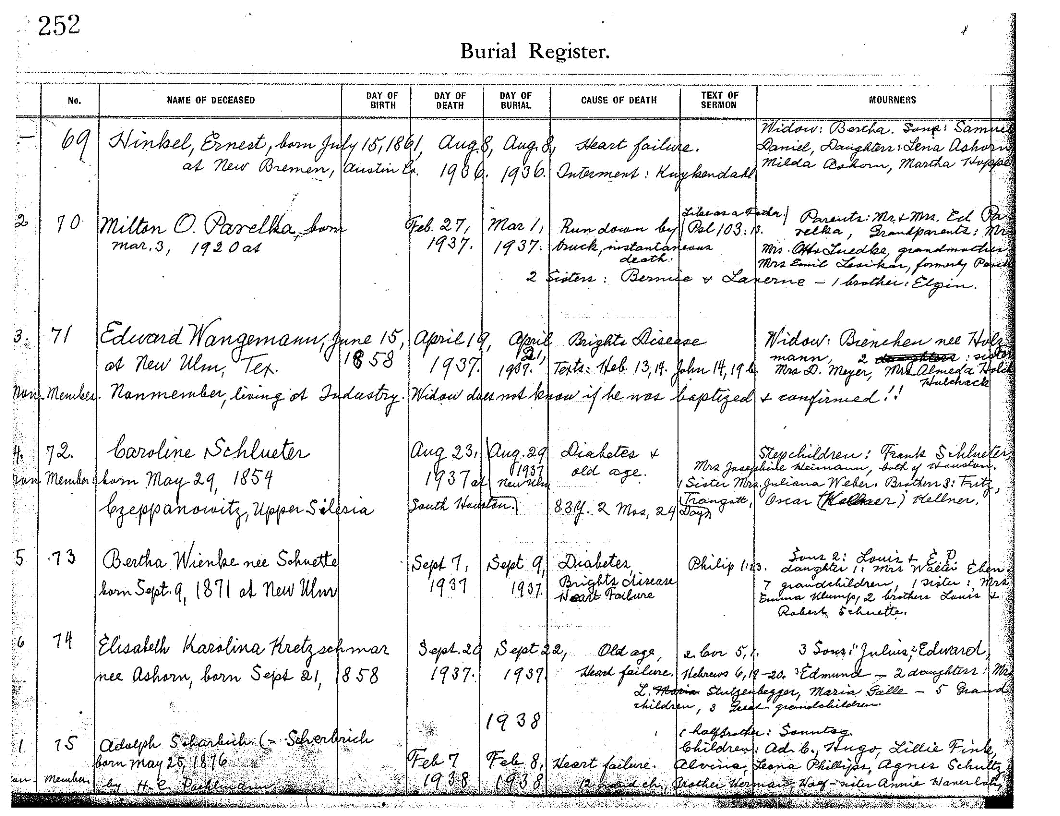 252
Burial Register.
No. NAME OF DECEASED DAY OF BIRTH DAY OF DEATH DAY OF BURIAL CAUSE OF DEATH TEXT OF SERMON MOURNERS
69 Hinkel, Ernest, born July 15, 1861, Aug 8, Aug. 8, Heart failure. Widow: Bertha. Sons: Samuel
at New Bremen, Austin Co. 1936. 1936. Interment: Kuykendahl Daniel, Daughters: Lena Ashorn,
Milda Ashorn, Martha Huppe
2 70 Milton O. Pavelka, born Feb. 27, Mar 1, Run down by Like as a Father Parents: Mr & Mrs. Ed Pa
mar. 3, 1920 at 1937. 1937. truck, instantaneous Psl 103:13. velka, Grandparents: Mr
death. Mrs. Otto Luedke, grandmother
Mrs Emil Lesikar, formerly
2 Sisters: Bernice & Laverne - 1 brother: Elgin.
3. 71 Edward Wangemann, June 15, April 19, April Brights Disease Widow: Bienchen nee Holz
at New Ulm, Tex. 1858 1937. 21, 1937. Texts: Heb. 13,14. John 14,19 b mann, 2 daughters: sister
Mrs D. Meyer, Mrs Almeda
Non Member. Nonmember, living at Industry. Widow does not know if he was baptized & confirmed!!
4. 72. Caroline Schlueter Aug 23, Aug. 29 Diabetes & Stepchildren: Frank Schlueter,
Non Member born May 29, 1854 1937 at 1937 New Ulm old age. Mrs Josephine Heimann, both of Houston.
1 Sister Mrs Juliana Weber: Brothers 3: Fritz,
Czeppanowitz, Upper Silesia South Houston. 83 y. 2 Mos, 24 Days Traugott, Oscar (Kellner) Kellner.
5 73 Bertha Wienke nee Schuette Sept 7, Sept 9, Diabetes Philip 1:23. Sons 2: Louis & E D
born Sept. 9, 1871 at New Ulm 1937 1937. Brights disease daughter 1: Mrs Walter Eben
Heart Failure 7 grandchildren, 1 sister: Mrs
Emma Klump, 2 brothers Louis &
Robert Schuette.
6 74 Elisabeth Karolina Kretzschmar Sept. 20 Sept 22, Old age, 2 Cor 5,1. 3 Sons: Julius, Edward,
nee Ashorn, born Sept 21, 1858 1937. 1937 Heart failure. Hebrews 6,19-20. Edmund - 2 daughters: Mrs
L. Stulzenbegger, Maria Galle - 5 Grand
children, 3 Great grandchildren
1938
1 halfbrother: Sonntag
1. 75 Adolph Scharbich (- Scherbrich Feb 7 Feb 8, Heart failure. Children: Ad. C., Hugo, Lillie Fink,
born May 25, 1876 1938 1938 Alvina, Leona Phillips, Agnes Schultz
Member by H. C. 12 grand ch, Brother Herman Half-sister Annie